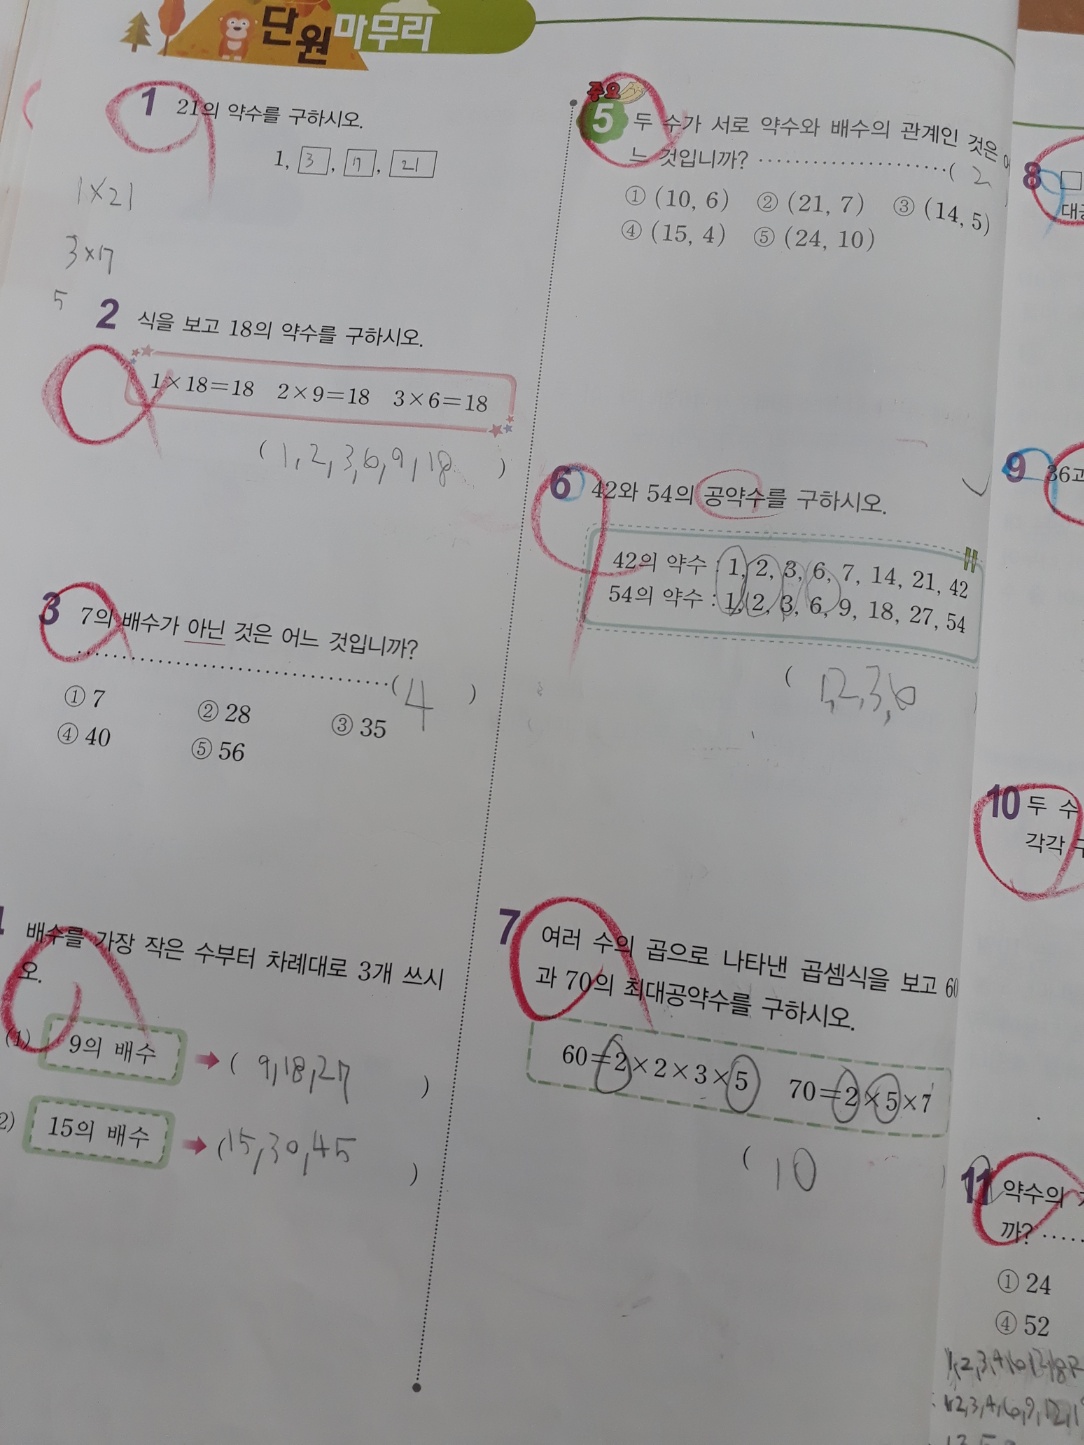 단원마무리
1 21의 약수를 구하시오.
1, 3, 7, 21
1×21
3×7
5
2 식을 보고 18의 약수를 구하시오.
1×18=18 2×9=18 3×6=18
(1, 2, 3, 6, 9, 18)
3 7의 배수가 아닌 것은 어느 것입니까?
(4)
① 7 ② 28 ③ 35
④ 40 ⑤ 56
배수를 가장 작은 수부터 차례대로 3개 쓰시
오.
(1) 9의 배수 → (9, 18, 27)
2) 15의 배수 → (15, 30, 45)
중요
5 두 수가 서로 약수와 배수의 관계인 것은 어
느 것입니까? (2
① (10, 6) ② (21, 7) ③ (14, 5)
④ (15, 4) ⑤ (24, 10)
6 42와 54의 공약수를 구하시오.
42의 약수 : 1, 2, 3, 6, 7, 14, 21, 42
54의 약수 : 1, 2, 3, 6, 9, 18, 27, 54
(1, 2, 3, 6
7 여러 수의 곱으로 나타낸 곱셈식을 보고 60
과 70의 최대공약수를 구하시오.
60=2×2×3×5 70=2×5×7
(10)
8 □
대공
9 36과
10 두 수
각각 구
11 약수의
까?
① 24
④ 52